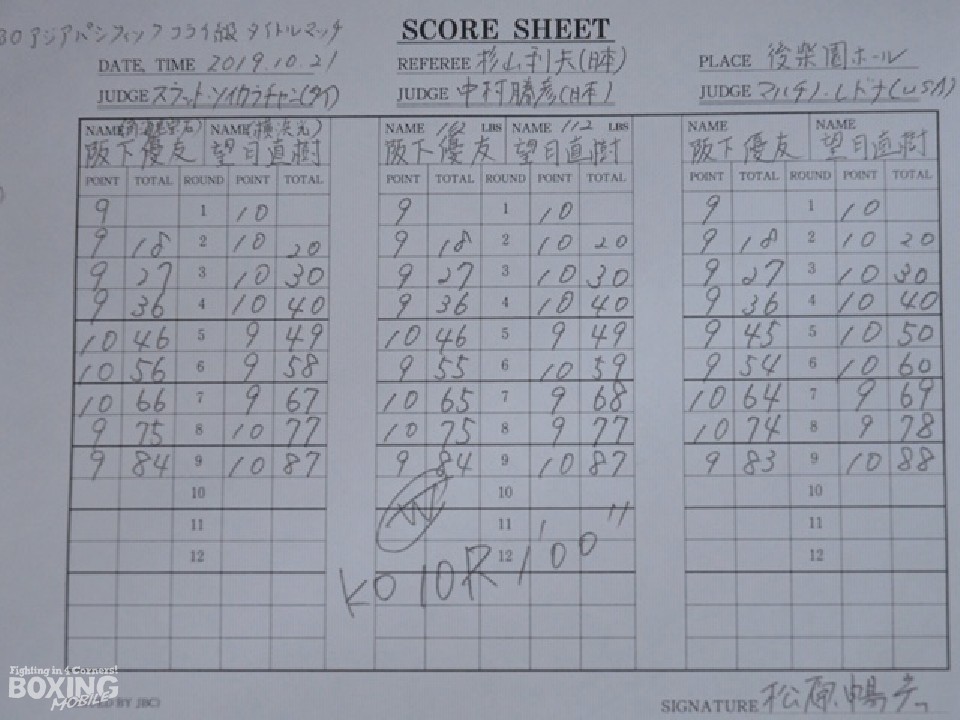 SCORE SHEET
アジアパシフィック フライ級 タイトルマッチ
DATE, TIME 2019.10.21 REFEREE 杉山利夫(日本) PLACE 後楽園ホール
JUDGE スラット・ソイカラチャン(タイ) JUDGE 中村勝彦(日本) JUDGE マハチノ・レドナ(USA)
NAME NAME (横浜光) NAME 112 LBS NAME 112 LBS NAME NAME
阪下優友 望月直樹 阪下優友 望月直樹 阪下優友 望月直樹
POINT TOTAL ROUND POINT TOTAL POINT TOTAL ROUND POINT TOTAL POINT TOTAL ROUND POINT TOTAL
9 1 10 9 1 10 9 1 10
9 18 2 10 20 9 18 2 10 20 9 18 2 10 20
9 27 3 10 30 9 27 3 10 30 9 27 3 10 30
9 36 4 10 40 9 36 4 10 40 9 36 4 10 40
10 46 5 9 49 10 46 5 9 49 9 45 5 10 50
10 56 6 9 58 9 55 6 10 59 9 54 6 10 60
10 66 7 9 67 10 65 7 9 68 10 64 7 9 69
9 75 8 10 77 10 75 8 9 77 10 74 8 9 78
9 84 9 10 87 9 84 9 10 87 9 83 9 10 88
10 10 10
W
11 11 11
12 12 12
KO 10R 1'00"
Fighting in 4 Corners!
BOXING
MOBILE
BY JBC)
SIGNATURE 松原